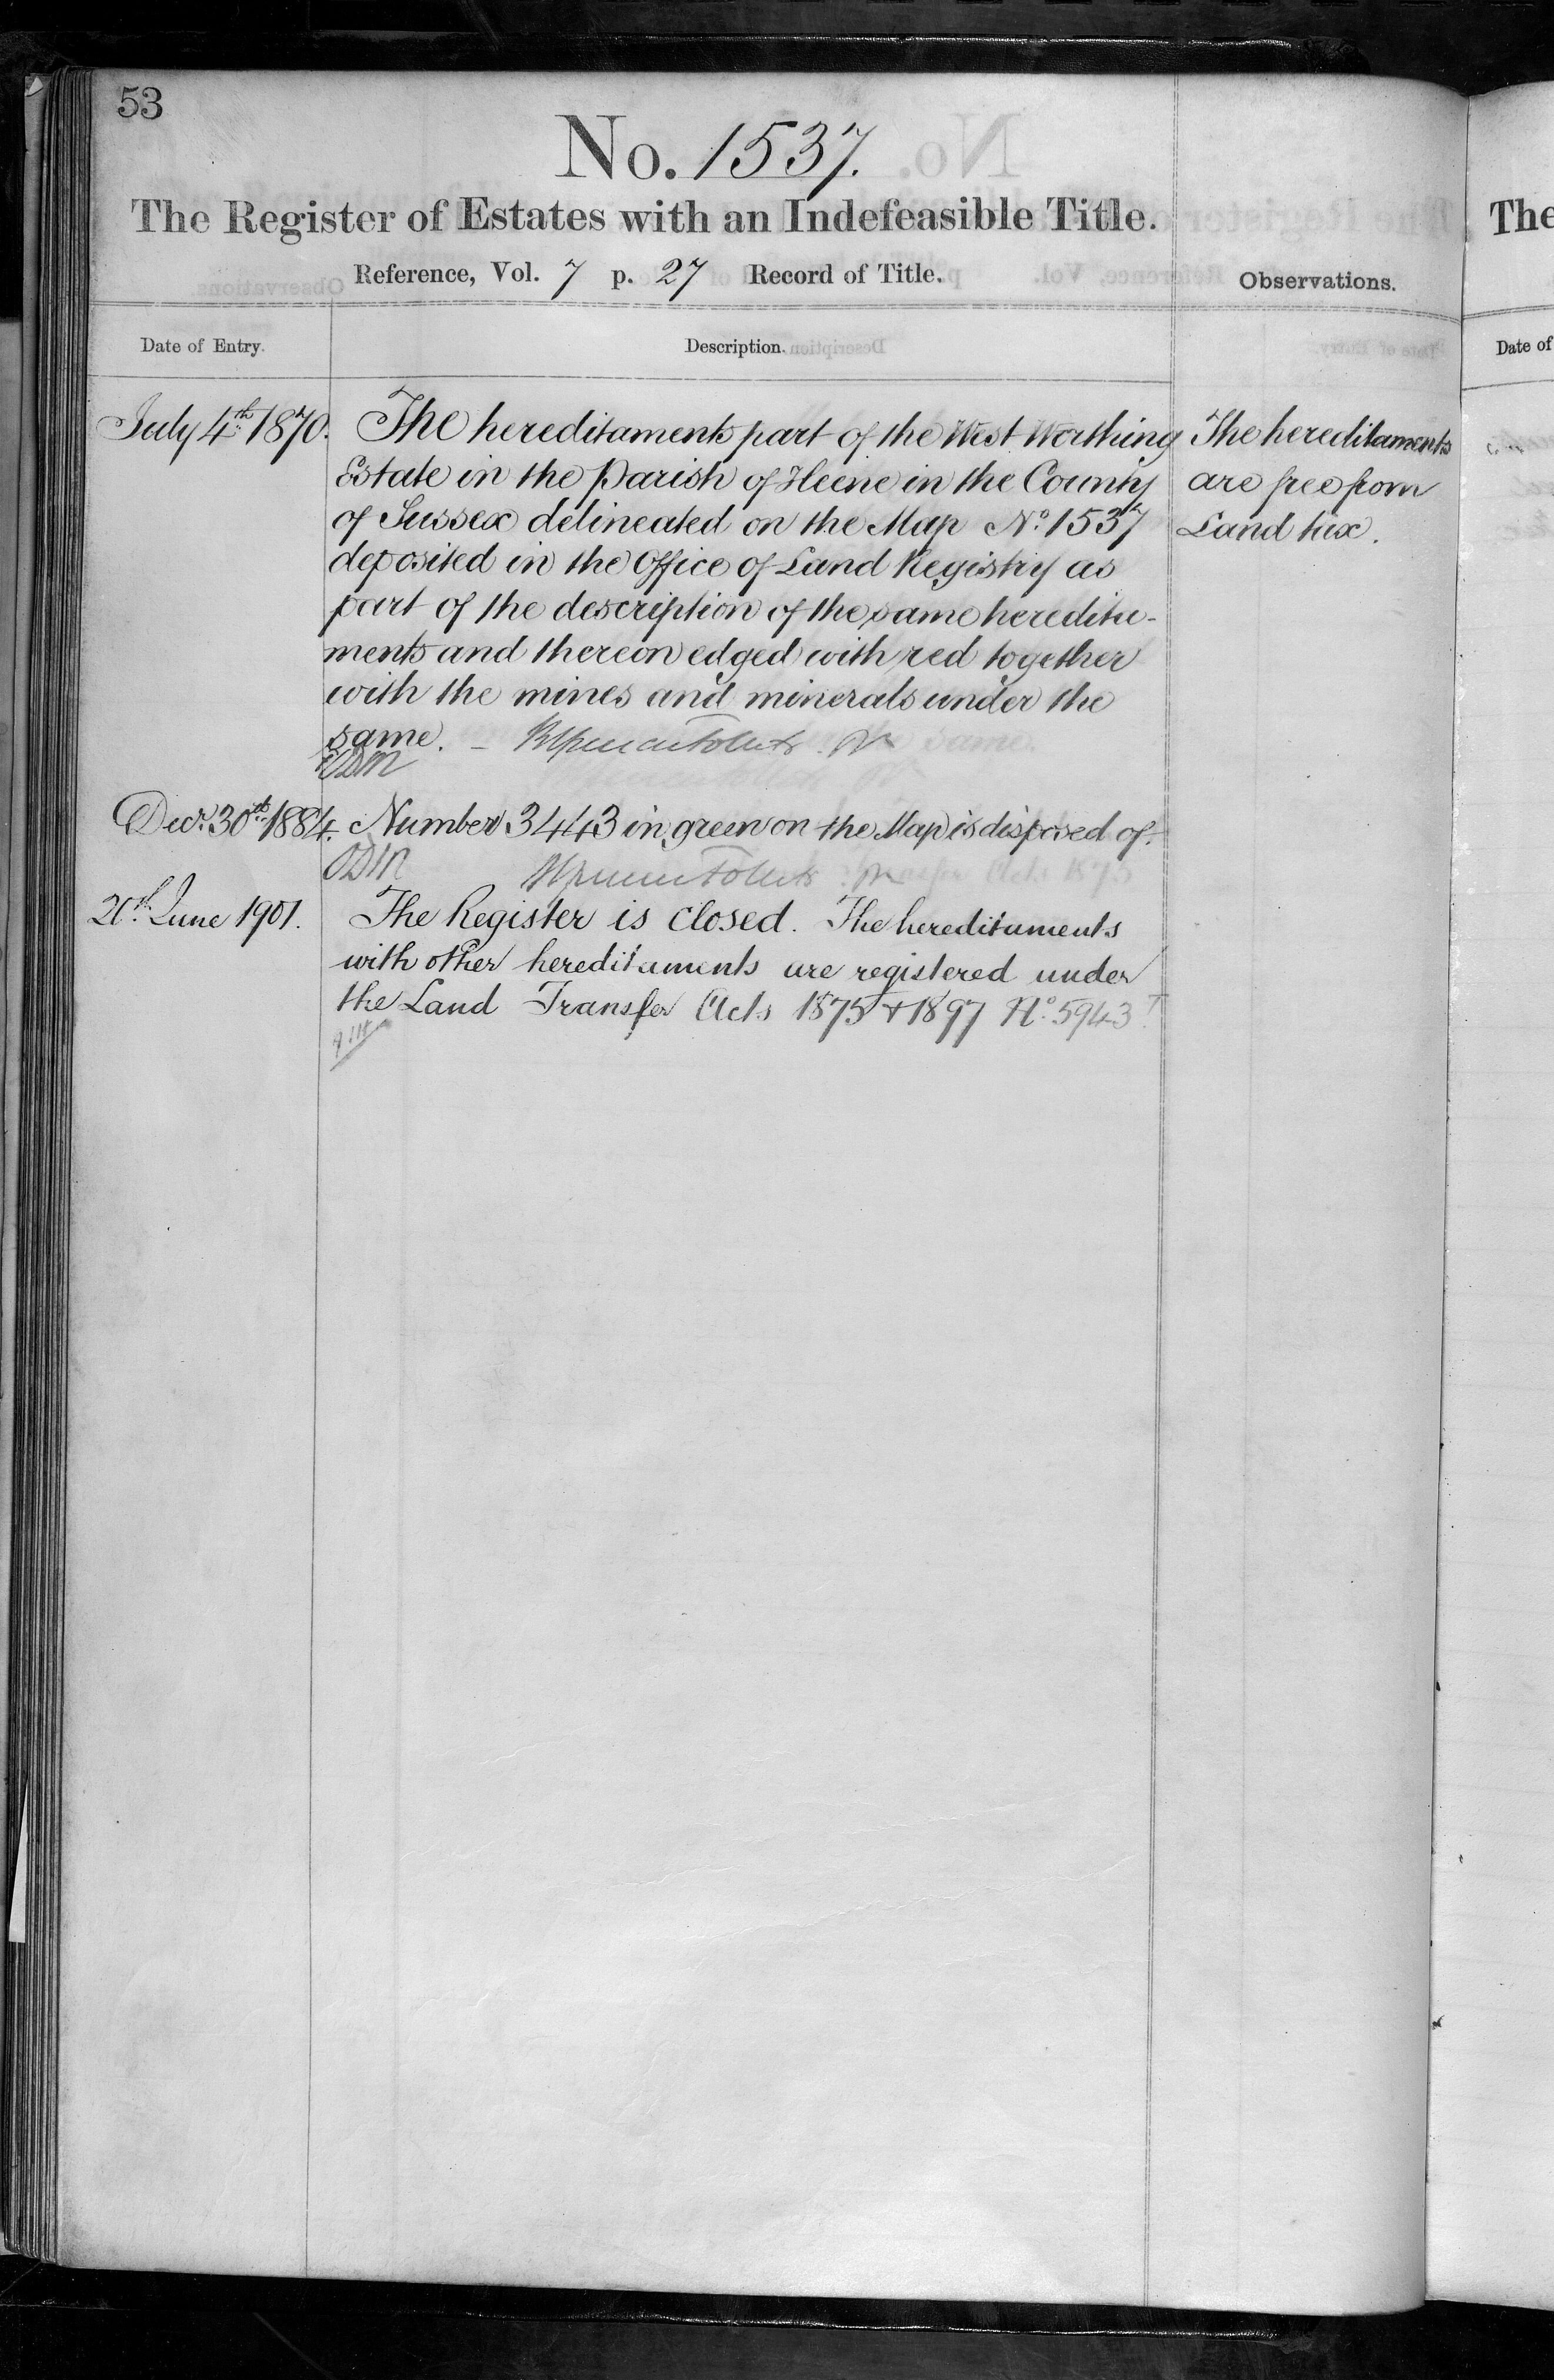 53
No. 1537.
The Register of Estates with an Indefeasible Title.
Reference, Vol. 7 p. 27 Record of Title.
Observations.
Date of Entry.
Description.
July 4th 1870.
The hereditaments part of the West Worthing
Estate in the Parish of Heene in the County
of Sussex delineated on the Map No. 1537
deposited in the Office of Land Registry as
part of the description of the same heredita-
ments and thereon edged with red together
with the mines and minerals under the
same.
The hereditaments
are free from
Land tax.
Decr. 30th 1884.
Number 3443 in green on the Map is disposed of.
20th June 1901.
The Register is closed. The hereditaments
with other hereditaments are registered under
the Land Transfer Acts 1875 & 1897 No. 5943
The
Date of